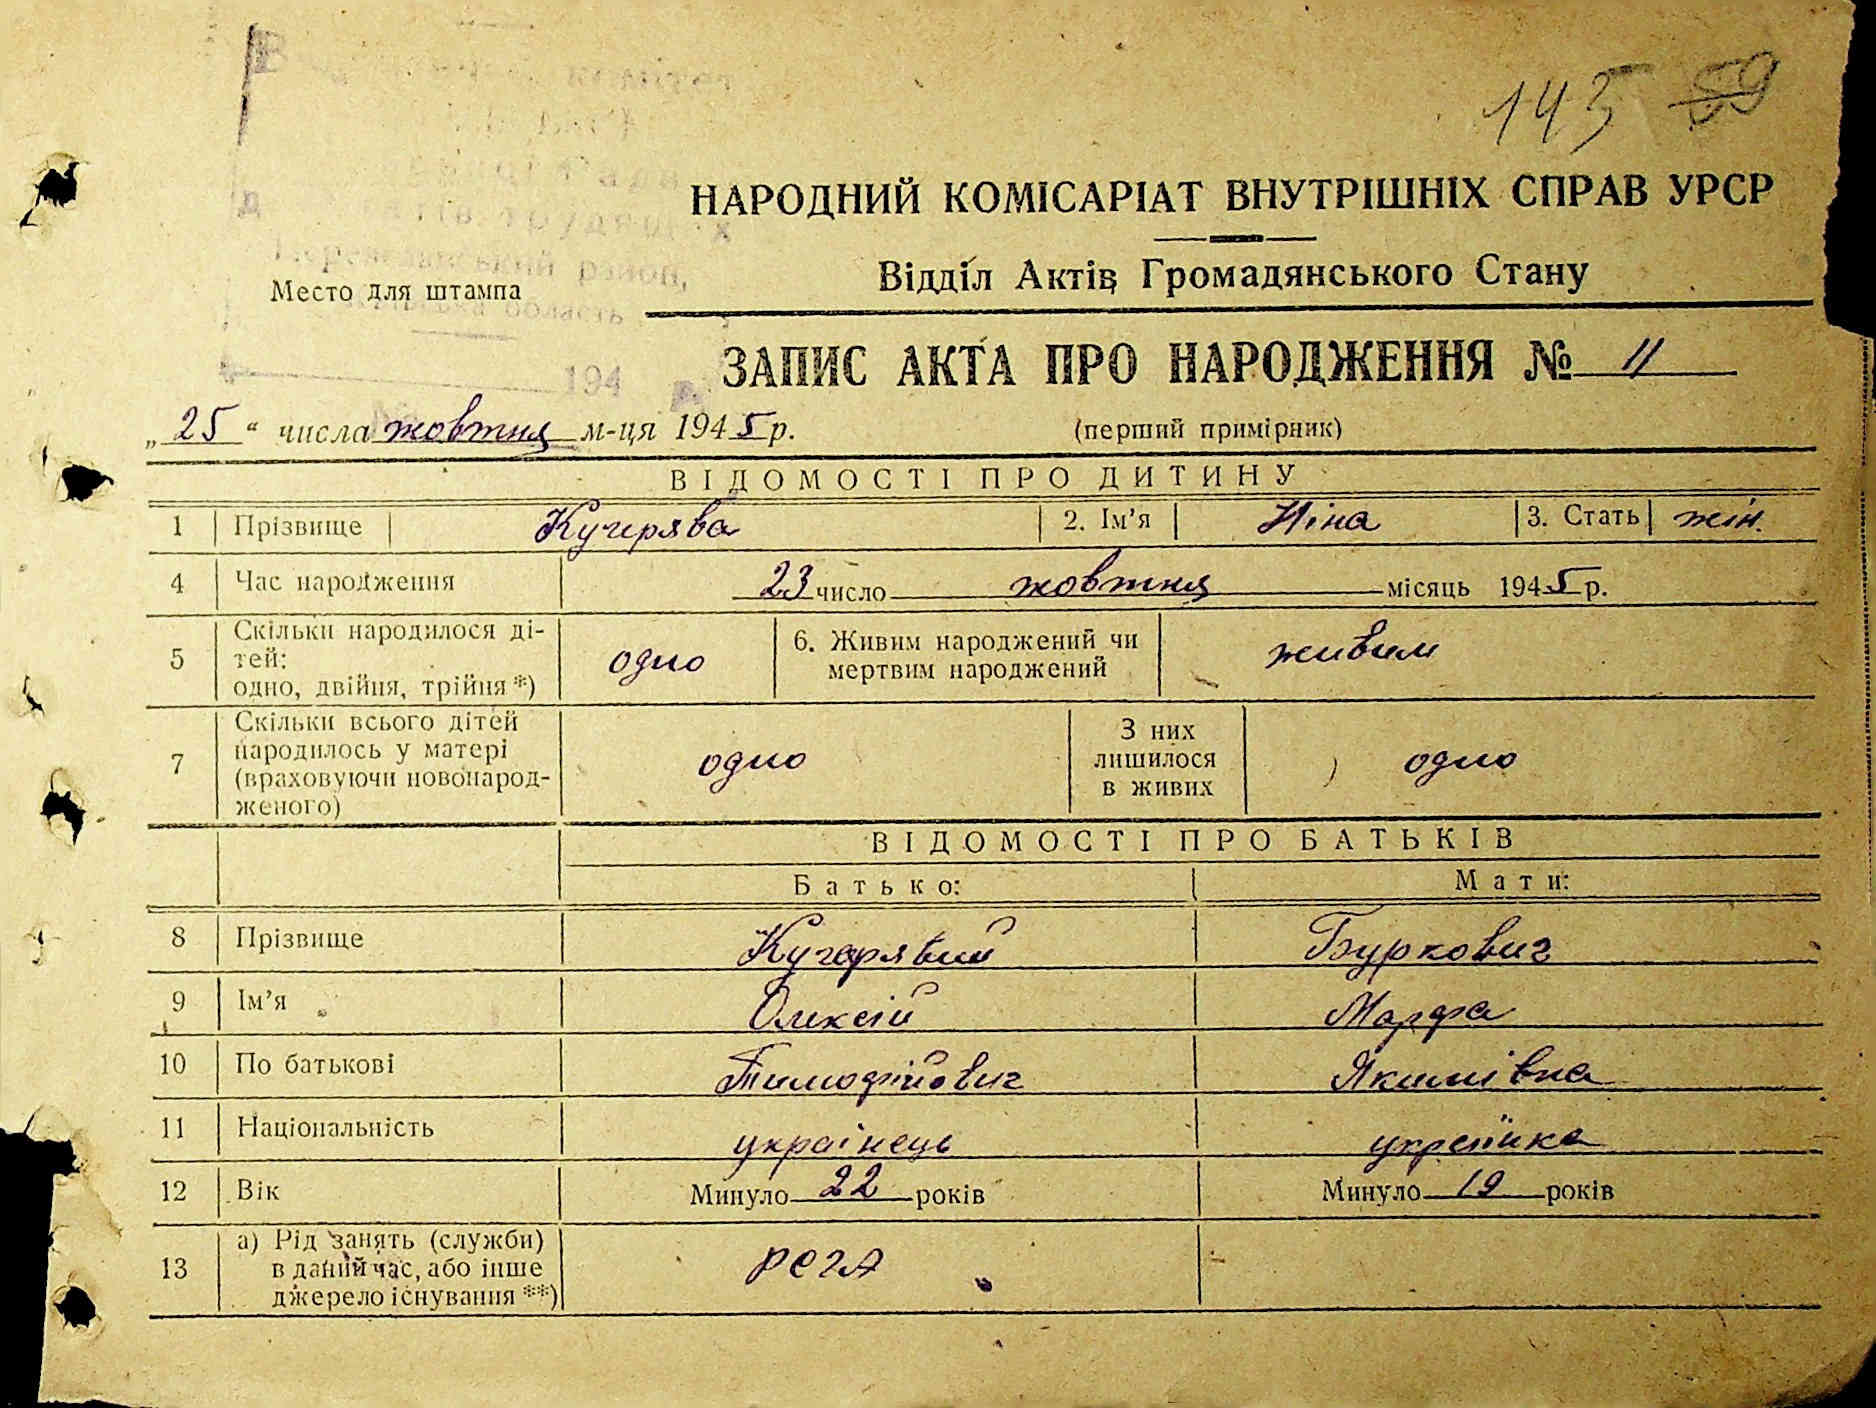 145 59
НАРОДНИЙ КОМІСАРІАТ ВНУТРІШНІХ СПРАВ УРСР
Відділ Актів Громадянського Стану
район,
Место для штампа
область
194
ЗАПИС АКТА ПРО НАРОДЖЕННЯ № 11
„25“ числа жовтня м-ця 1945 р.
(перший примірник)
ВІДОМОСТІ ПРО ДИТИНУ
1 Прізвище Кучерява 2. Ім'я Ніна 3. Стать жін.
4 Час народження 23 число жовтня місяць 1945 р.
5 Скільки народилося ді-
тей:
одно, двійня, трійня *) одно 6. Живим народжений чи
мертвим народжений живим
7 Скільки всього дітей
народилось у матері
(враховуючи новонарод-
женого) одно З них
лишилося
в живих одно
ВІДОМОСТІ ПРО БАТЬКІВ
Батько: Мати:
8 Прізвище Кучерявий Буркович
9 Ім'я Олексій Марфа
10 По батькові Тимофійович Якимівна
11 Національність українець українка
12 Вік Минуло 22 років Минуло 19 років
13 а) Рід занять (служби)
в даний час, або інше
джерело існування **)